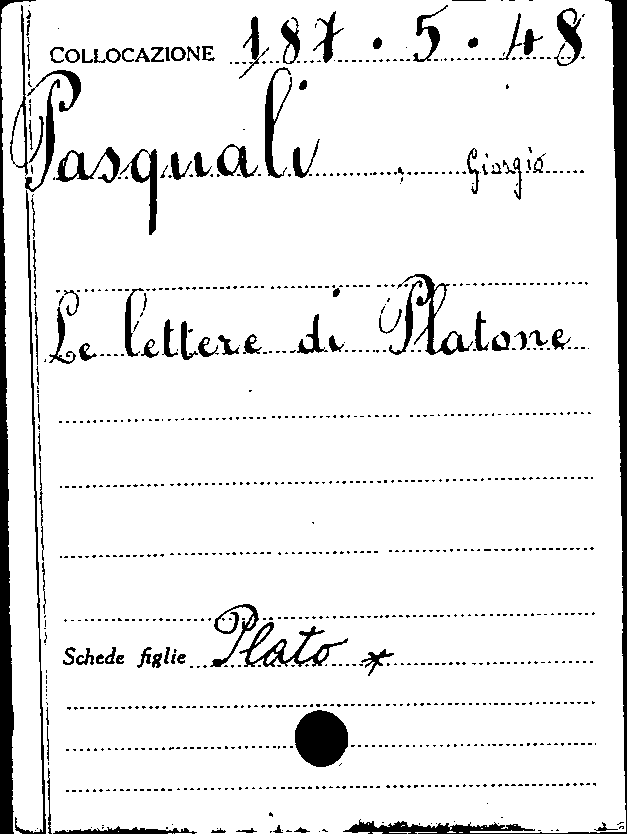 COLLOCAZIONE 187.5.48
Pasquali, Giorgio
Le lettere di Platone
Schede figlie Plato *